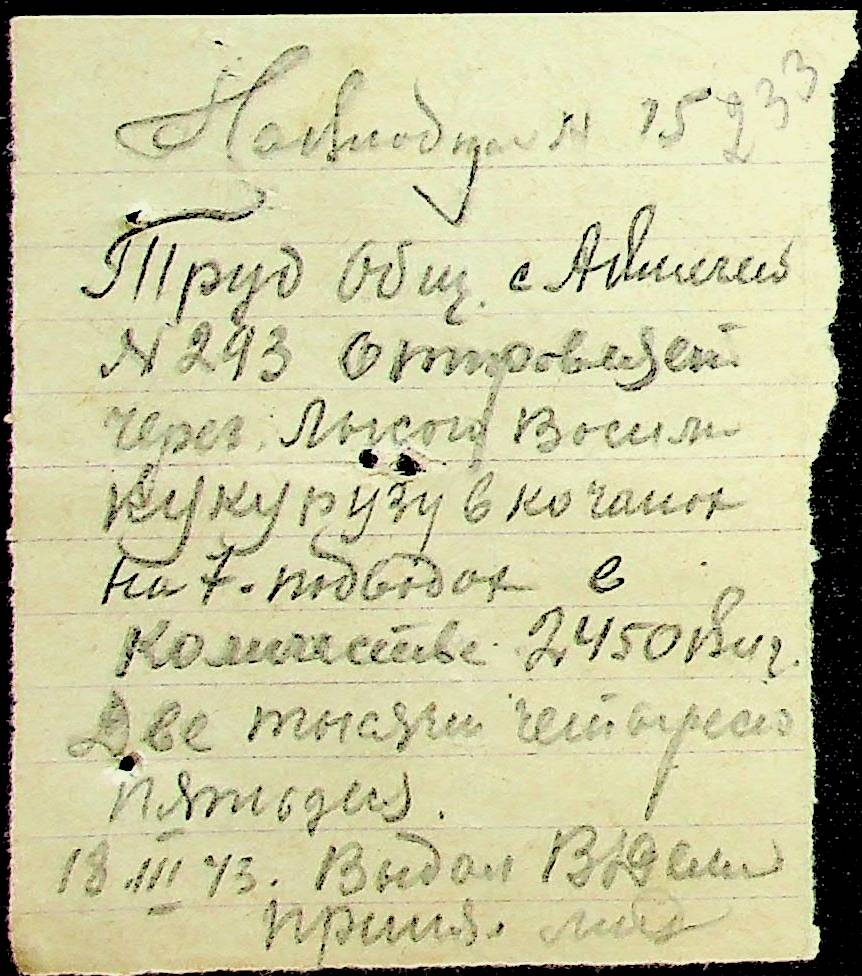 Накладная N 15 233
Труд Общ. с
N 293 отправляет
через Лысой Васили
кукурузу в кочанах
на 7. подводах в
количестве 2450
Две тысячи четыреста
пятьдеся.
18 III 43. Выдал
принял.